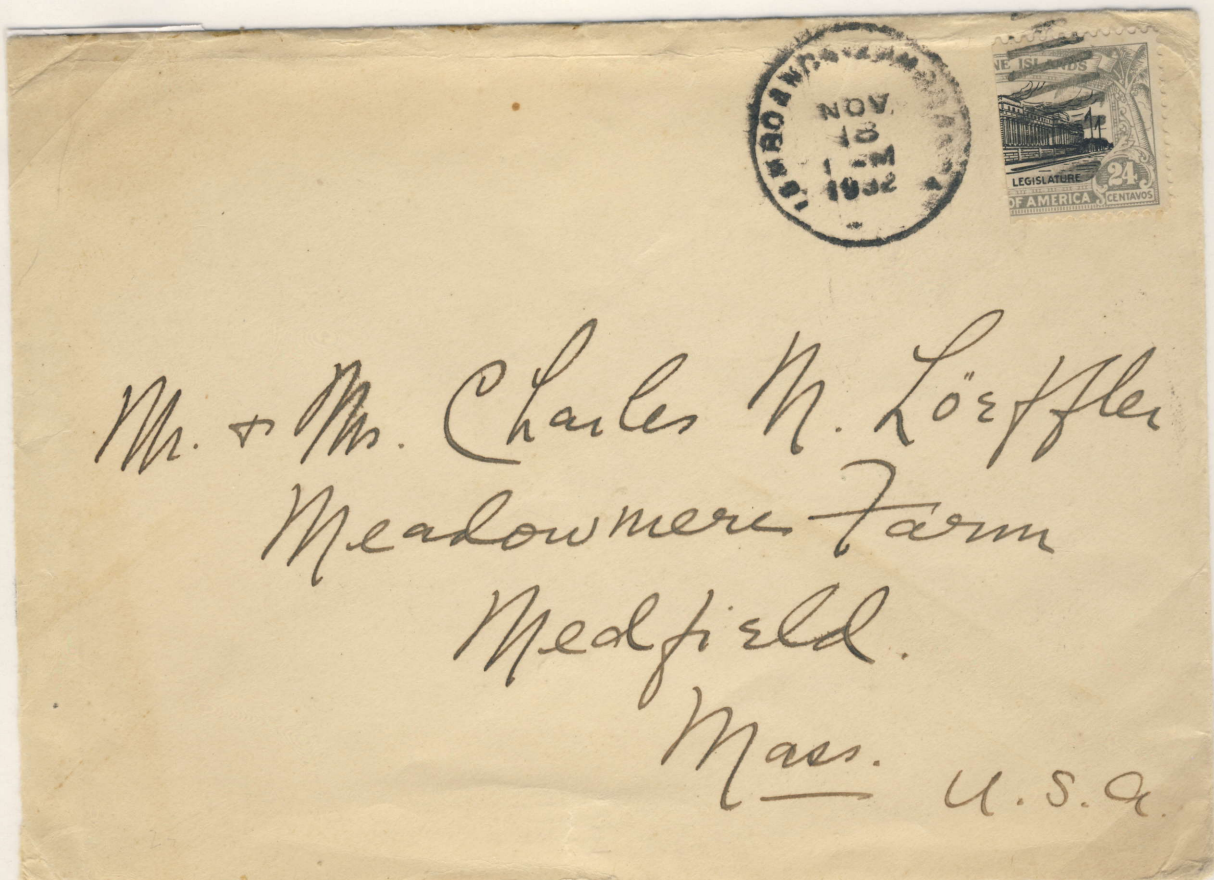 NOV
18
1932
NE ISLANDS
LEGISLATURE
24
OF AMERICA CENTAVOS
Mr. & Mrs. Charles M. Löeffler
Meadowmere Farm
Medfield.
Mass.
U.S.A.